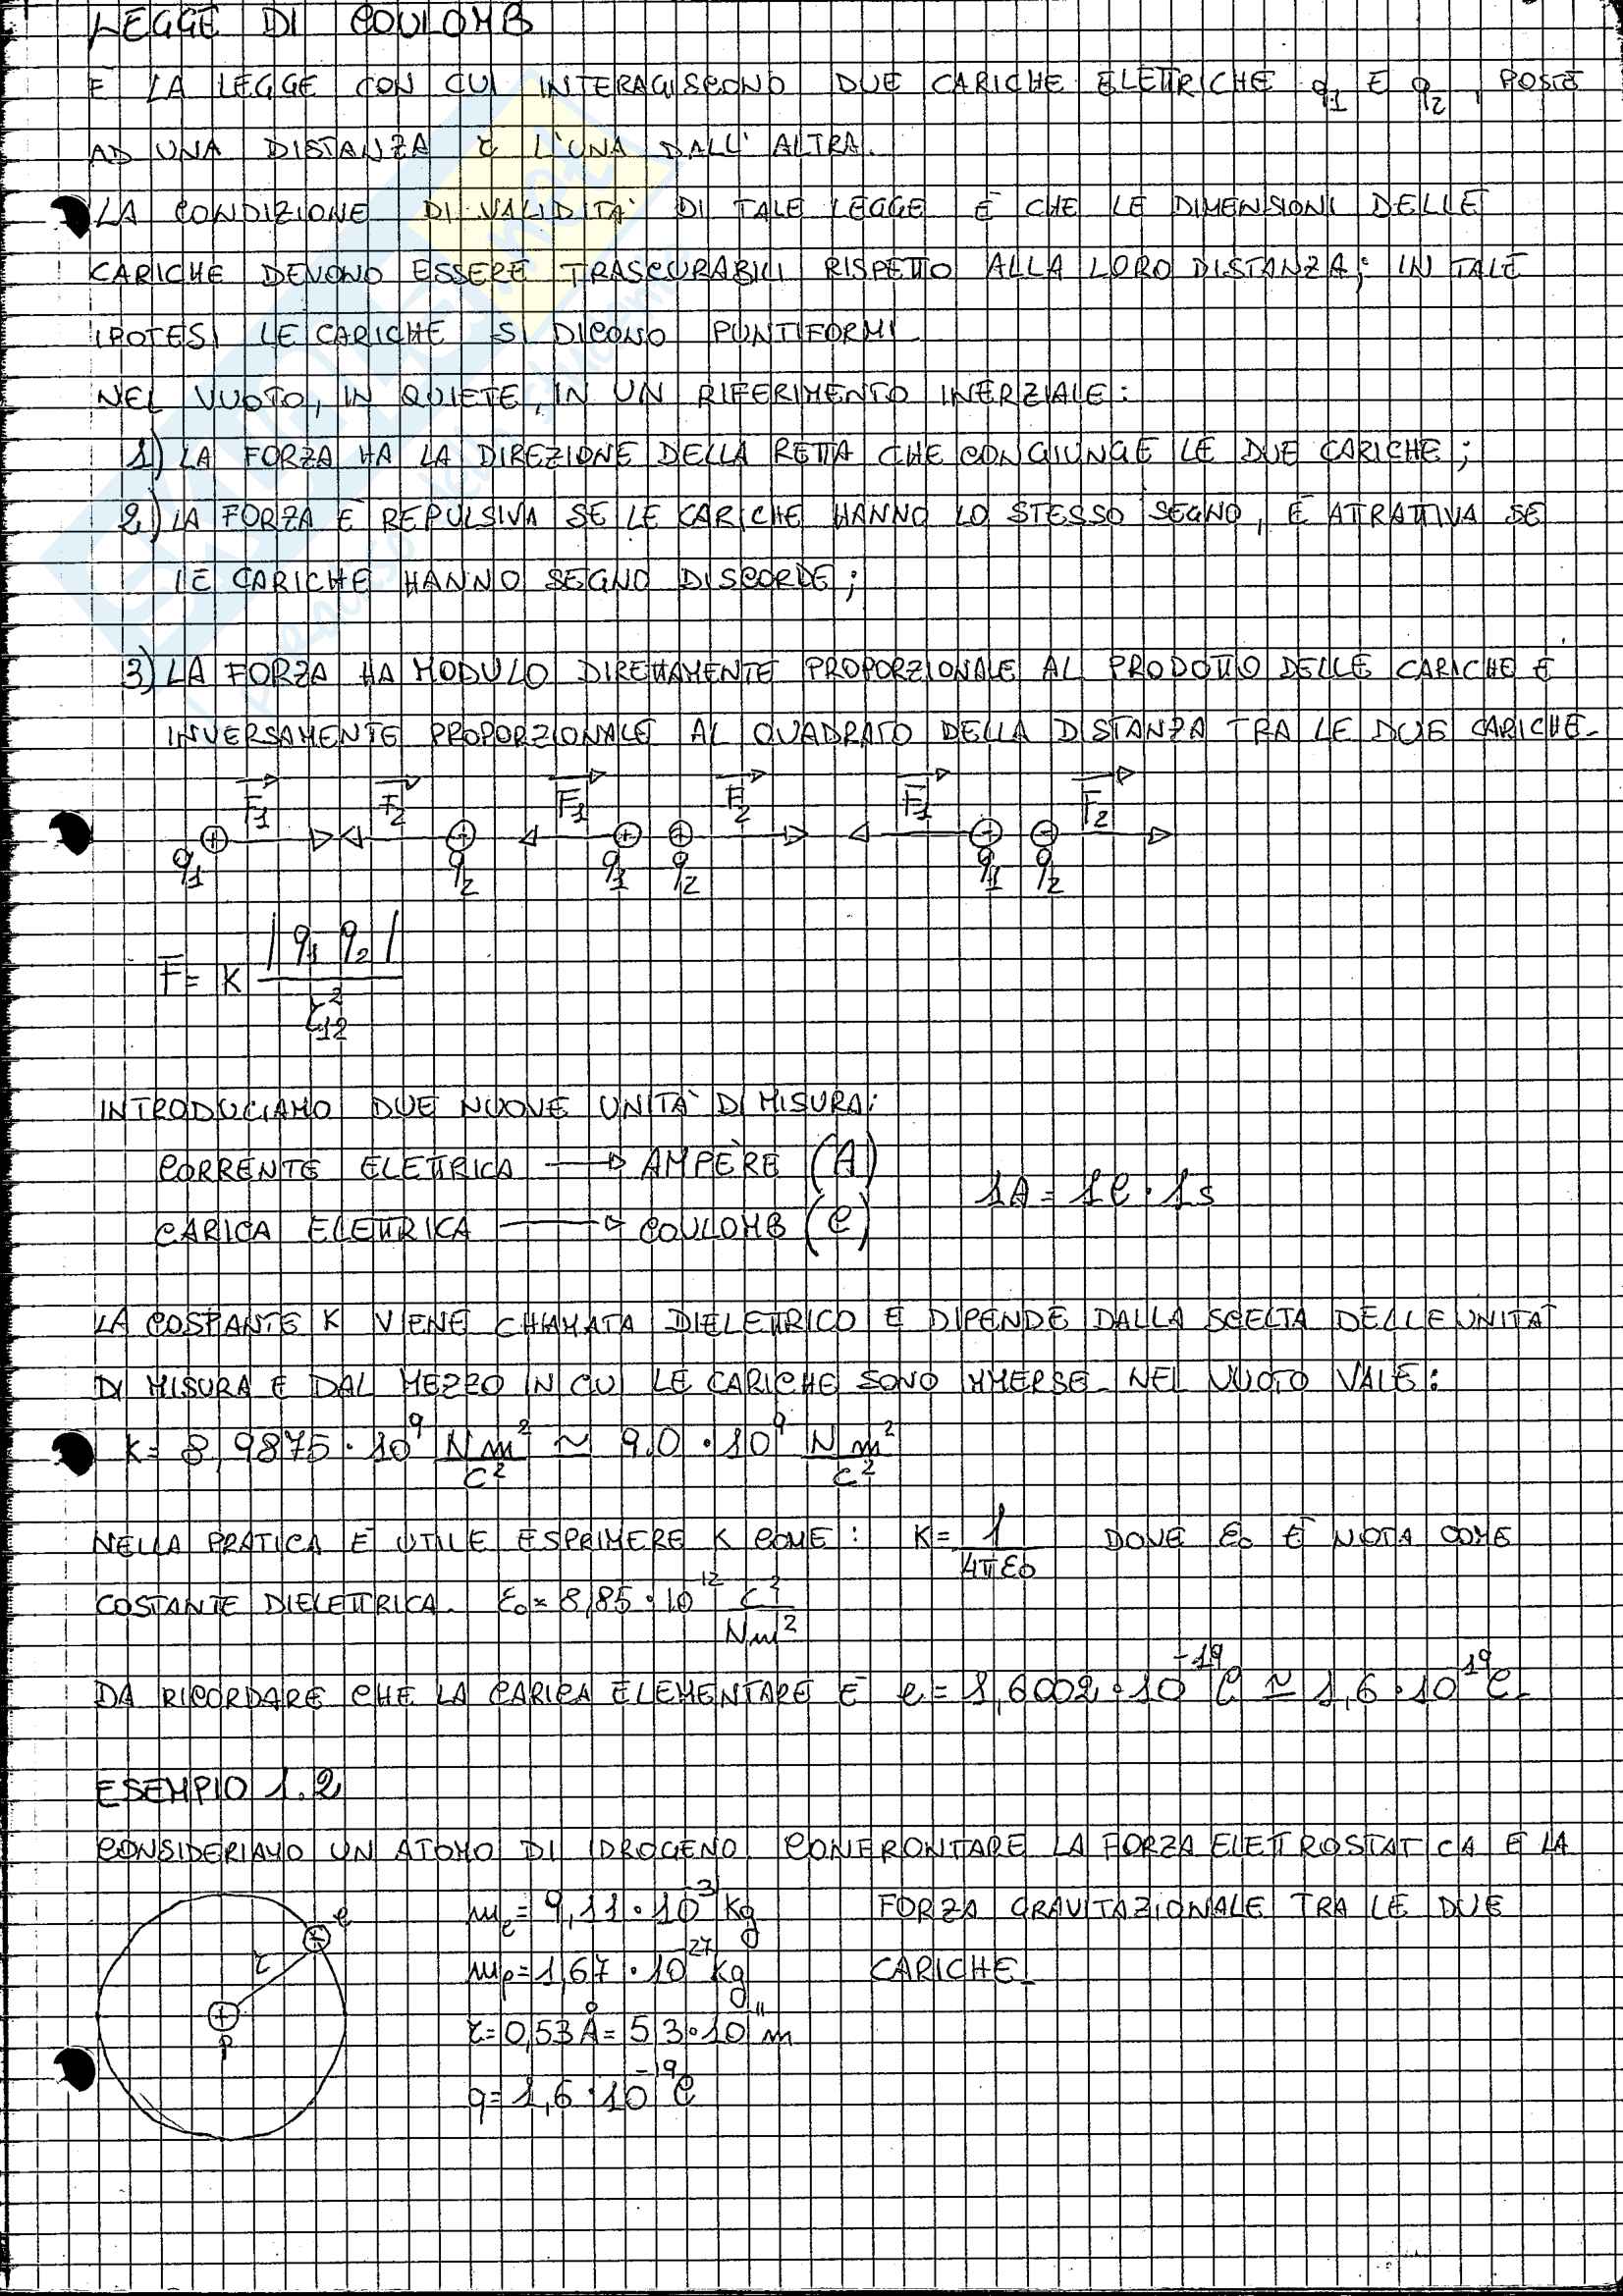 LEGGE DI COULOMB
È LA LEGGE CON CUI INTERAGISCONO DUE CARICHE ELETTRICHE q1 E q2, POSTE
AD UNA DISTANZA r L'UNA DALL'ALTRA.
LA CONDIZIONE DI VALIDITA' DI TALE LEGGE È CHE LE DIMENSIONI DELLE
CARICHE DEVONO ESSERE TRASCURABILI RISPETTO ALLA LORO DISTANZA; IN TALE
IPOTESI LE CARICHE SI DICONO PUNTIFORMI.
NEL VUOTO, IN QUIETE, IN UN RIFERIMENTO INERZIALE:
1) LA FORZA HA LA DIREZIONE DELLA RETTA CHE CONGIUNGE LE DUE CARICHE;
2) LA FORZA È REPULSIVA SE LE CARICHE HANNO LO STESSO SEGNO, È ATRATTIVA SE
LE CARICHE HANNO SEGNO DISCORDE;
3) LA FORZA HA MODULO DIRETTAMENTE PROPORZIONALE AL PRODOTTO DELLE CARICHE E
INVERSAMENTE PROPORZIONALE AL QUADRATO DELLA DISTANZA TRA LE DUE CARICHE.
F1 F2 F1 F2 F1 F2
+ + + + - -
q1 q2 q1 q2 q1 q2
F = K |q1 q2| / r12²
INTRODUCIAMO DUE NUOVE UNITA' DI MISURA:
CORRENTE ELETTRICA → AMPÈRE (A)
1A = 1C · 1s
CARICA ELETTRICA → COULOMB (C)
LA COSTANTE K VIENE CHIAMATA DIELETTRICO E DIPENDE DALLA SCELTA DELLE UNITA'
DI MISURA E DAL MEZZO IN CUI LE CARICHE SONO IMMERSE. NEL VUOTO VALE:
K = 8,9875 · 10⁹ Nm²/C² ≈ 9.0 · 10⁹ Nm²/C²
NELLA PRATICA È UTILE ESPRIMERE K COME: K = 1/4πε0 DOVE ε0 È NOTA COME
COSTANTE DIELETTRICA. ε0 = 8,85 · 10¹² C²/Nm²
DA RICORDARE CHE LA CARICA ELEMENTARE È e = 1,6002 · 10⁻¹⁹ C ≃ 1,6 · 10¹⁹ C.
ESEMPIO 1.2
CONSIDERIAMO UN ATOMO DI IDROGENO. CONFRONTARE LA FORZA ELETTROSTATICA E LA
FORZA GRAVITAZIONALE TRA LE DUE
CARICHE.
e
r
+
p
me = 9,11 · 10⁻³¹ Kg
mp = 1,67 · 10⁻²⁷ Kg
r = 0,53 Å = 5,3 · 10⁻¹¹ m
q = 1,6 · 10⁻¹⁹ C